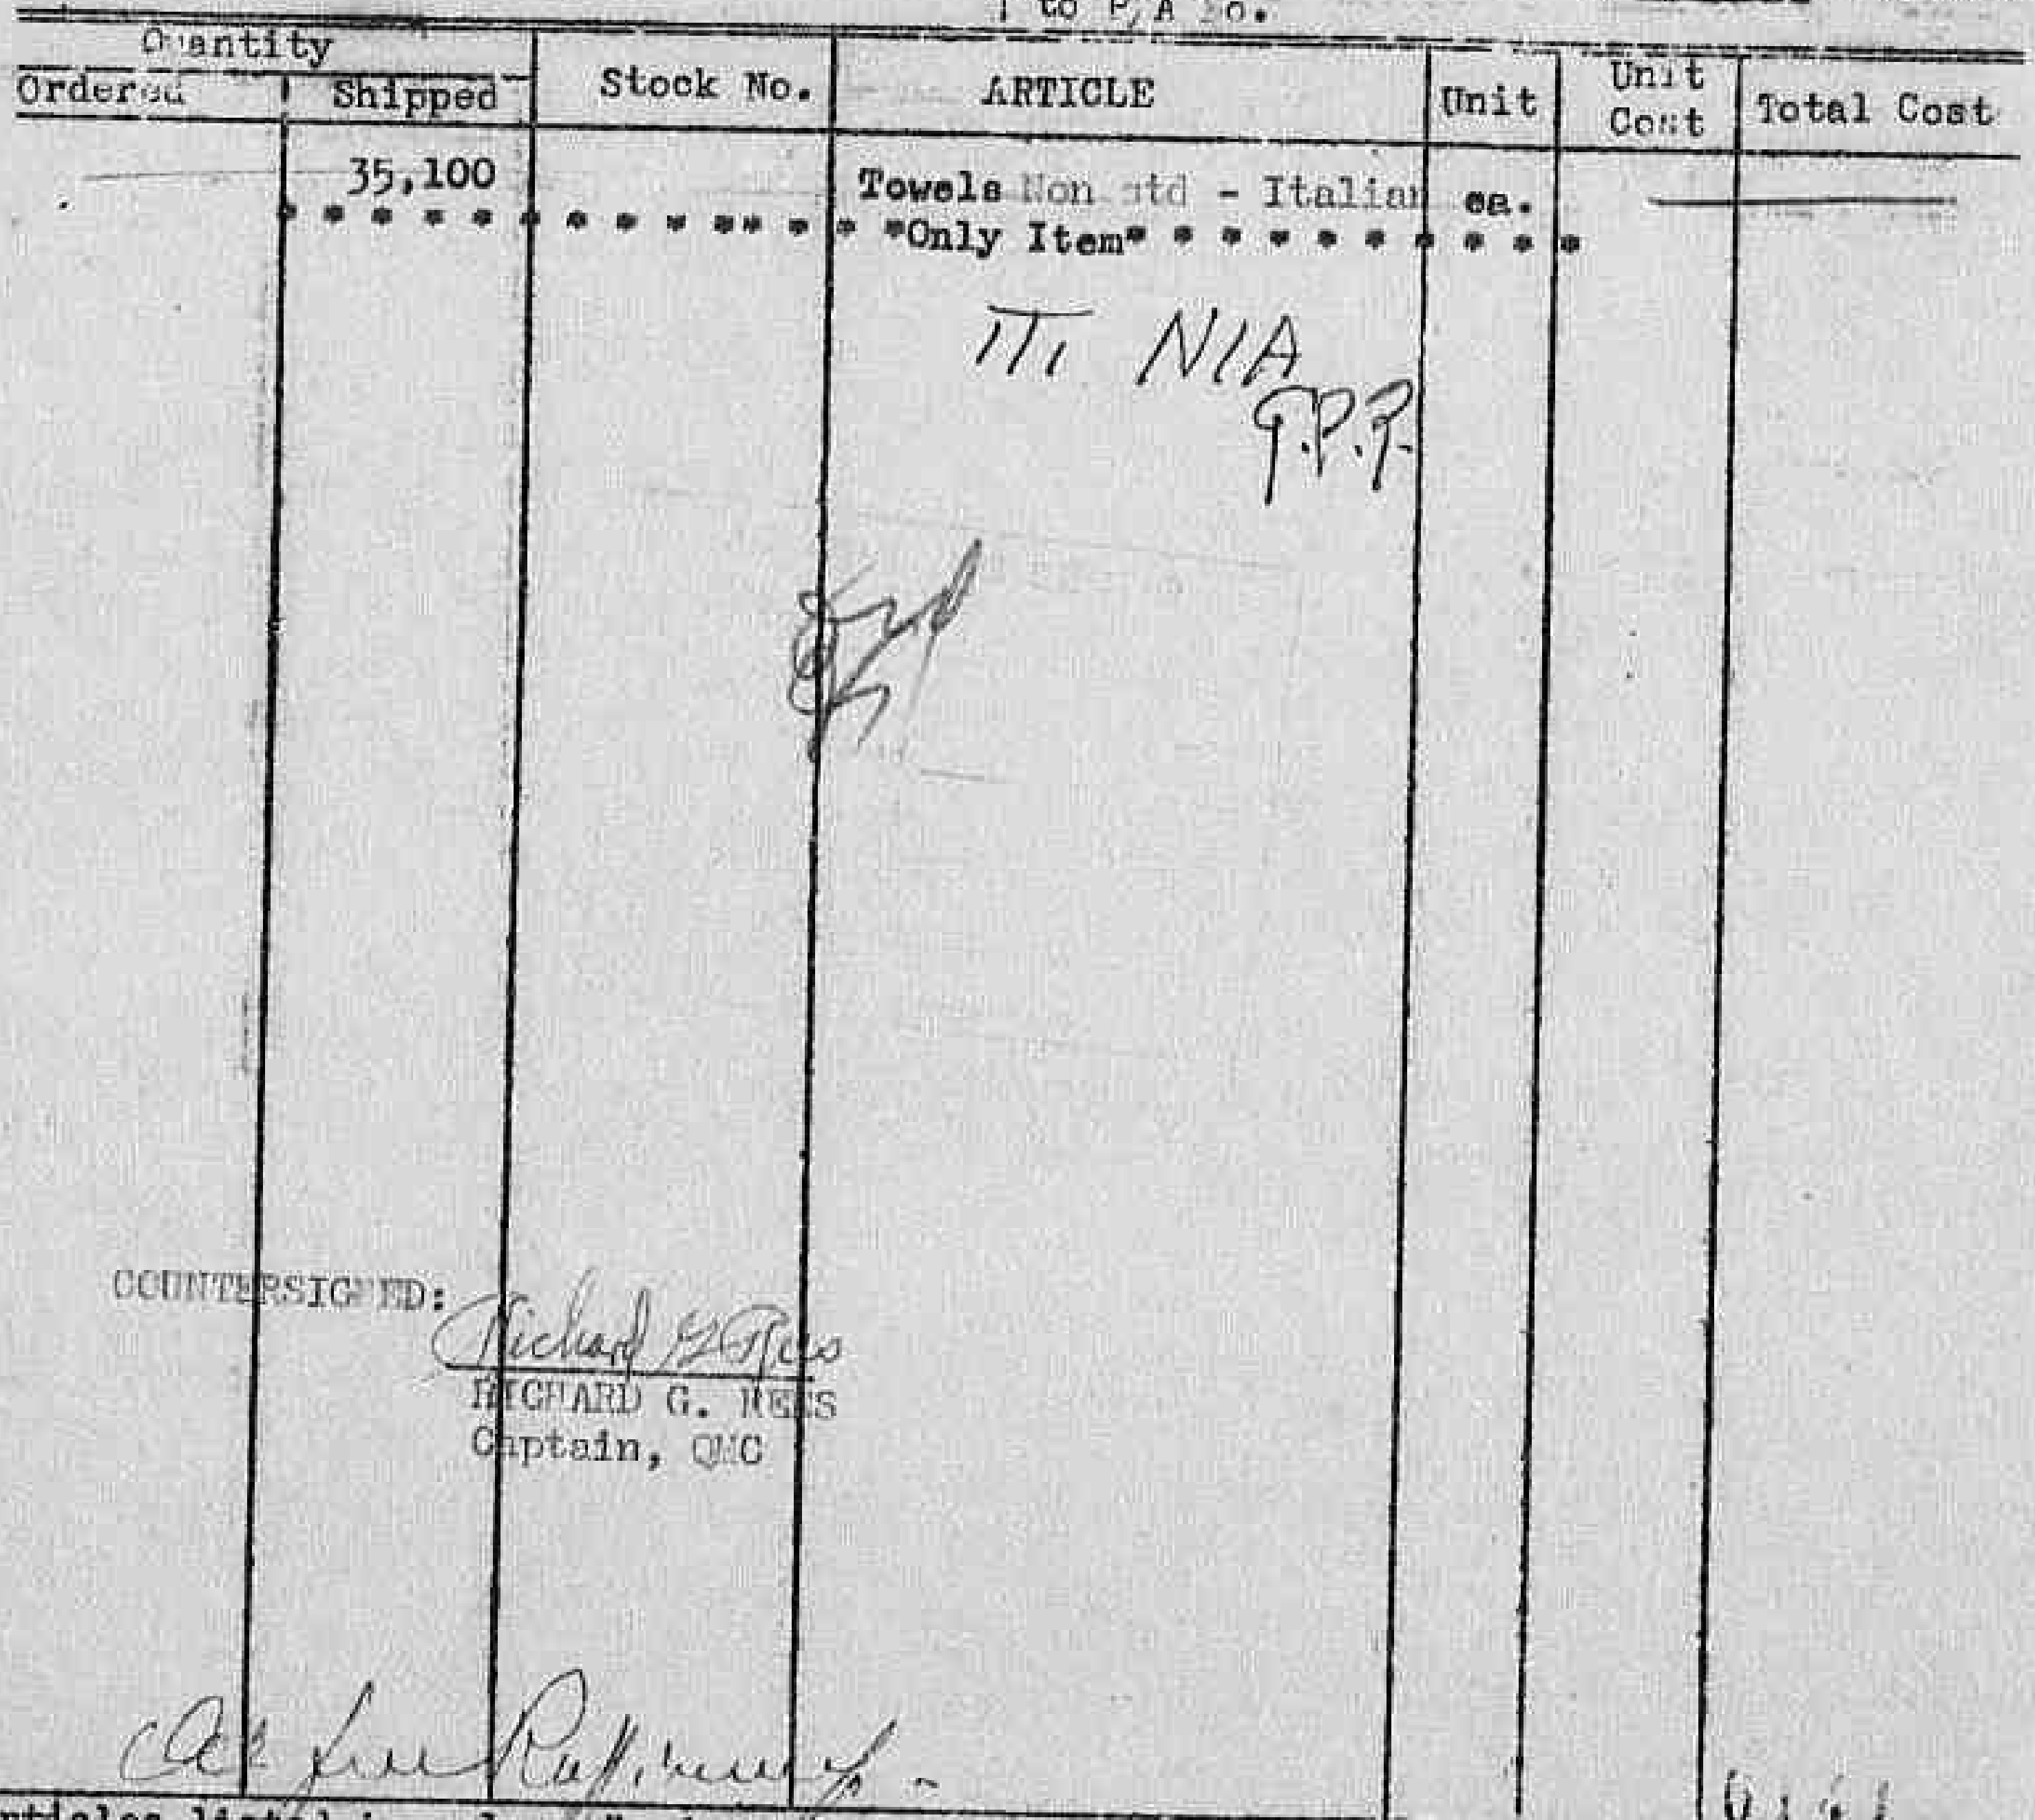 to P/A No.
Quantity
Ordered Shipped Stock No. ARTICLE Unit Unit Cost Total Cost
35,100 Towels Non std - Italian ea.
* * * * * * * * * * * * * *Only Item* * * * * * * * * *
ITI NIA
COUNTERSIGNED:
Richard G Rees
RICHARD G. REES
Captain, QMC